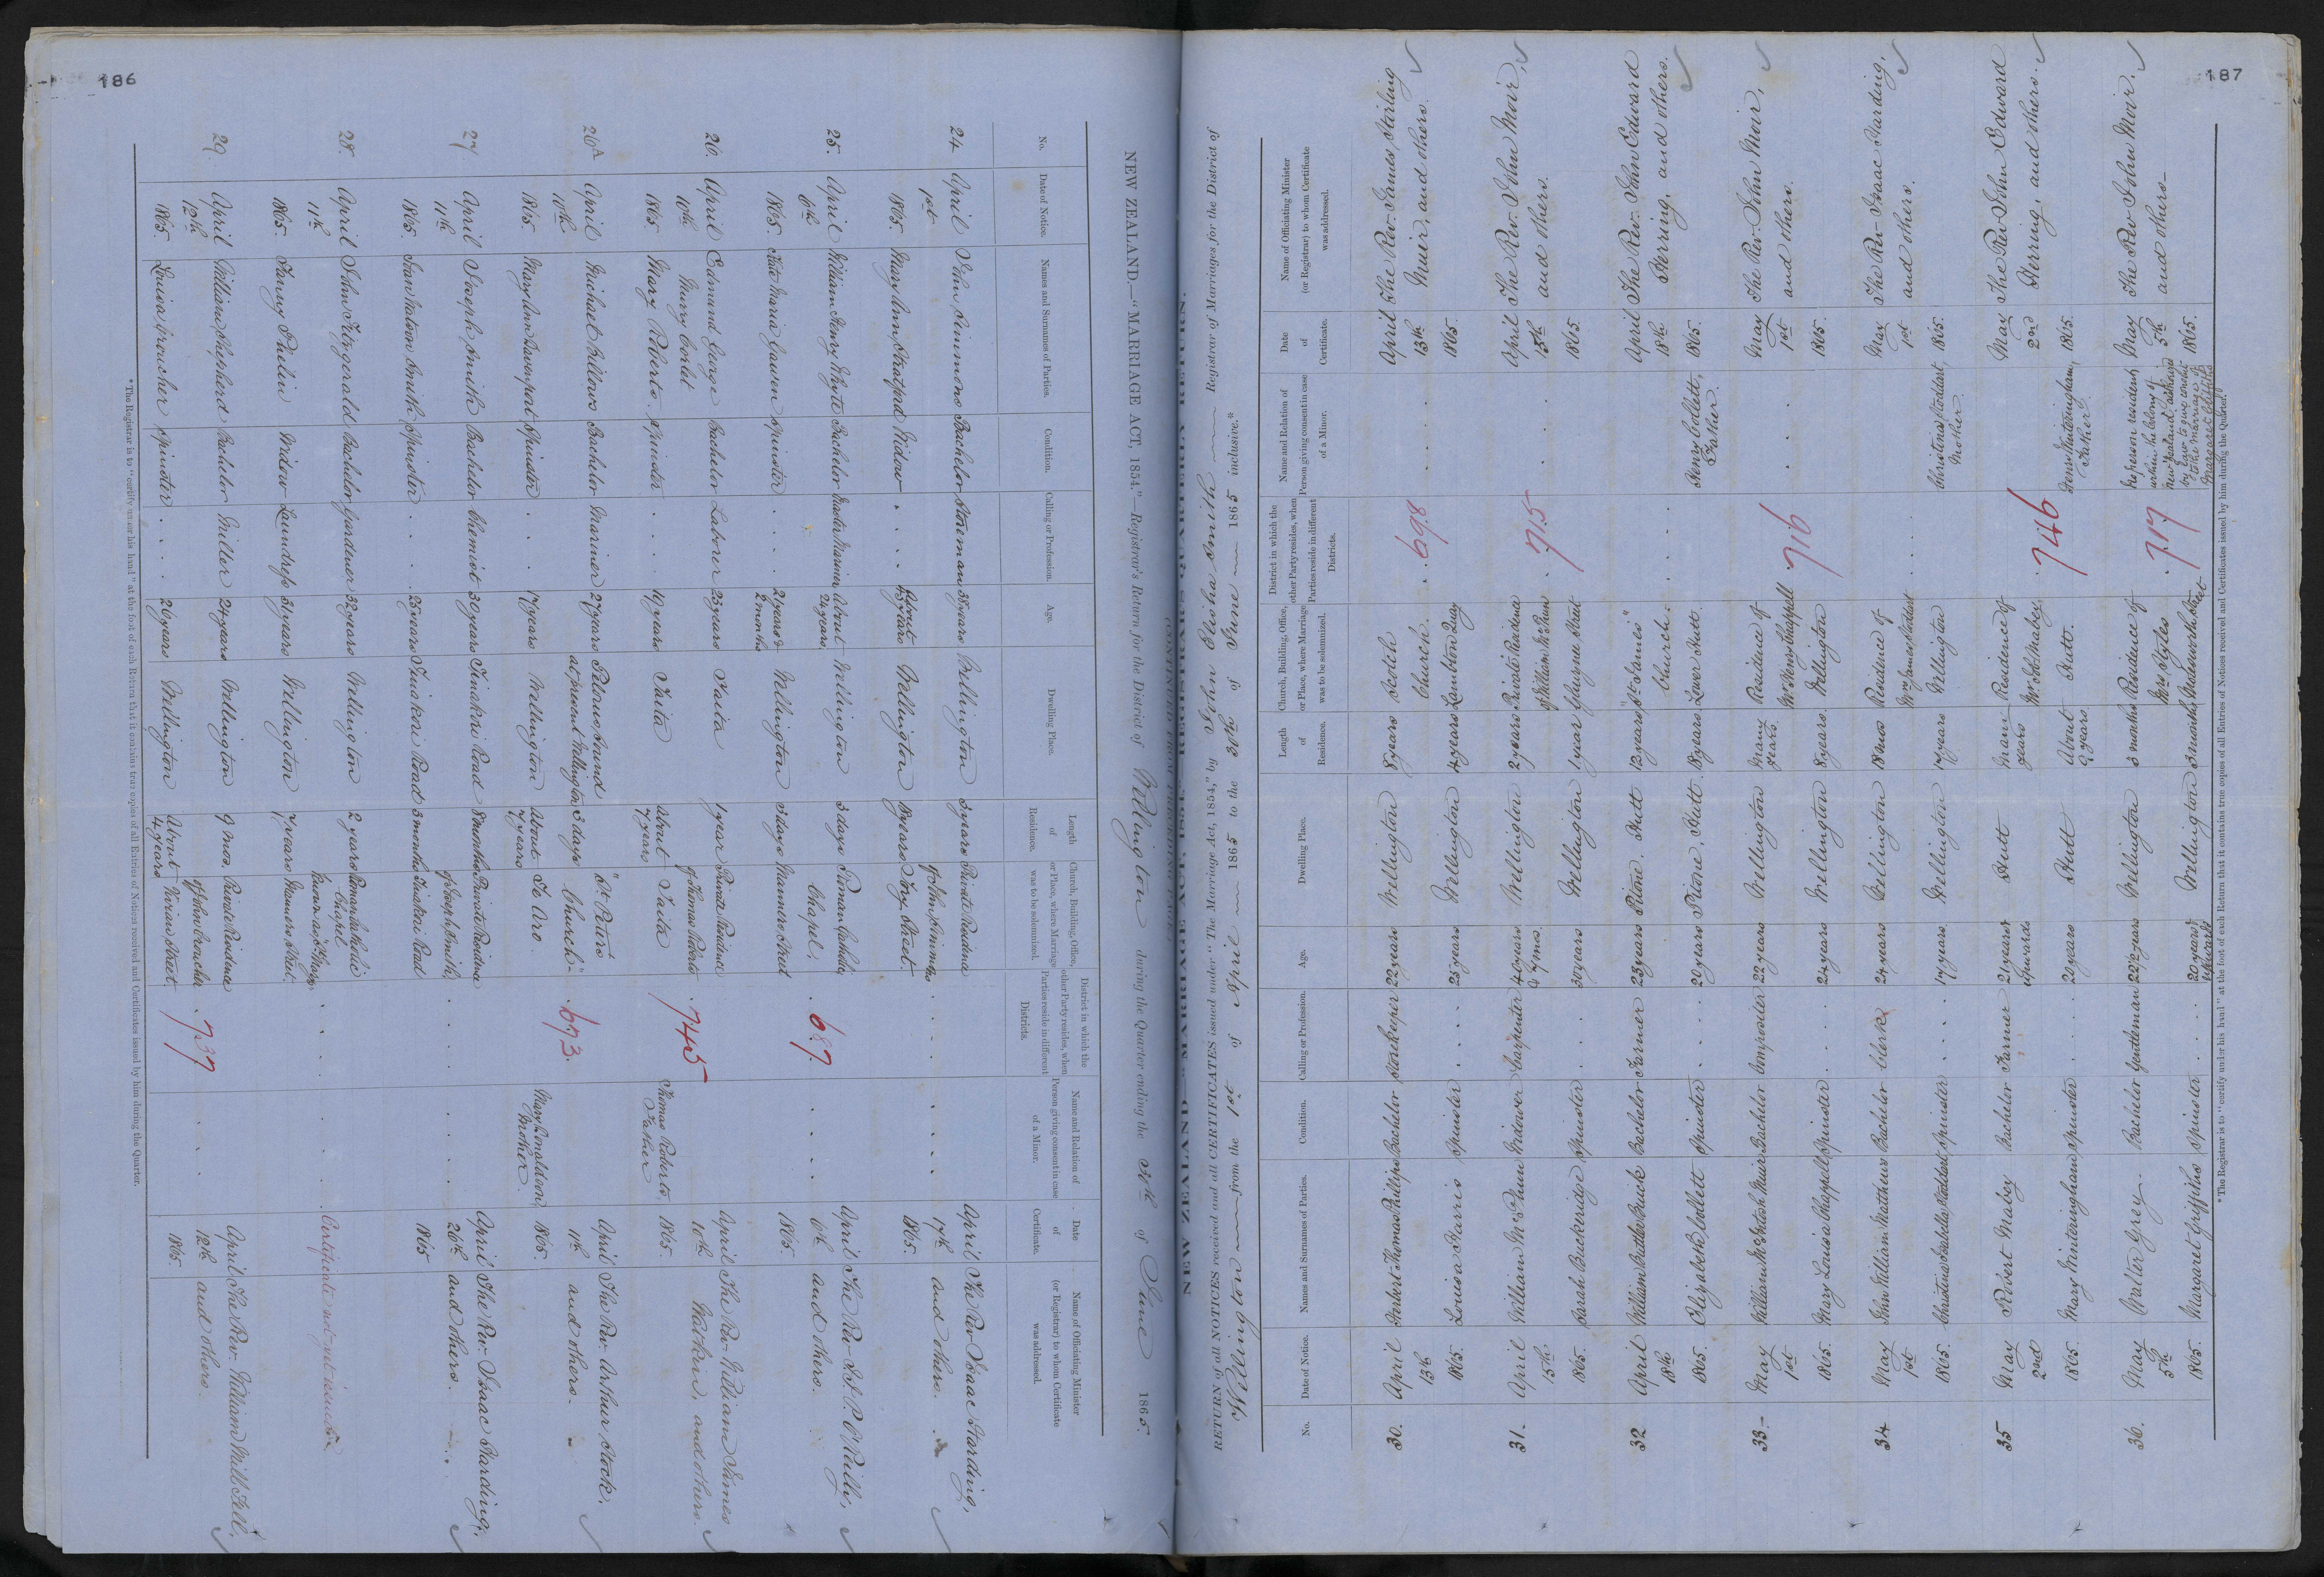 186
NEW ZEALAND.—"MARRIAGE ACT, 1854."—Registrar's Return for the District of Wellington during the Quarter ending the 30th of June 1865.
No. Date of Notice. Names and Surnames of Parties. Condition. Calling or Profession. Age. Dwelling Place. Length of Residence. Church, Building, Office, or Place, where Marriage was to be solemnized. District in which the other Party resides, when Parties reside in different Districts. Name and Relation of Person giving consent in case of a Minor. Date of Certificate. Name of Officiating Minister (or Registrar) to whom Certificate was addressed.
24 April 1st 1865. John Simmons Bachelor Storeman 38 years Wellington 3 years Private Residence of John Simmons April 17th 1865. The Rev Isaac Harding, and others.
Mary Ann Stratford Widow About Wellington 18 years Ivy Street.
25. April 6th 1865. William Henry Whyte Bachelor Master Mariner About 24 years, Wellington 3 days Roman Catholic Chapel, 687 April 6th 1865. The Rev J. P. O'Reilly, and others.
Kate Maria Gawen Spinster 21 years & 2 months Wellington 3 days Manners Street
26. April 10th 1865. Edmund George Bachelor Laborer 23 years Taita 1 year Private Residence of Thomas Roberts 745 April 10th 1865. The Rev. William James Watkin, and others.
Mary Roberts Spinster 19 years Taita about 7 years Taita Thomas Roberts, Father
26A April 10th 1865. Michael Billows Bachelor Mariner 27 years Pelorus Sound at present Wellington 3 days "St Peter's Church" 673. April 11th 1865. The Rev. Arthur Stock, and others.
Mary Ann Davenport Spinster 17 years Wellington About 7 years Te Aro. Mary Donaldson, Mother.
27 April 11th 1865. Joseph Smith Bachelor Chemist 30 years Tinakori Road 8 months Private Residence of Joseph Smith, April 26th 1865 The Rev. Isaac Harding, and others.
Smith Spinster 25 years Tinakori Road 3 months Tinakori Road
28. April 11th 1865. John Fitzgerald Bachelor Gardener 32 years Wellington 2 years Roman Catholic Chapel Certificate not yet issued
Fanny Widow Laundress 31 years Wellington 7 years Manners Street.
29. April 12th 1865. William Shepherd Bachelor Miller 21 years Wellington 9 mos. Private Residence of John Croucher 737 April 12th 1865. The Rev. William and others.
Louisa Croucher Spinster 20 years Wellington About 4 years Vivian Street.
*The Registrar is to "certify under his hand" at the foot of each Return that it contains true copies of all Entries of Notices received and Certificates issued by him during the Quarter.
187
NEW ZEALAND—"MARRIAGE ACT, 1854"—REGISTRAR'S QUARTERLY RETURN.
RETURN of all NOTICES received and all CERTIFICATES issued under "The Marriage Act, 1854," by John Elisha Smith Registrar of Marriages for the District of
Wellington from the 1st of April 1865 to the 30th of June 1865 inclusive.*
No. Date of Notice. Names and Surnames of Parties. Condition. Calling or Profession. Age. Dwelling Place. Length of Residence. Church, Building, Office, or Place, where Marriage was to be solemnized. District in which the other Party resides, when Parties reside in different Districts. Name and Relation of Person giving consent in case of a Minor. Date of Certificate. Name of Officiating Minister (or Registrar) to whom Certificate was addressed.
30. April 13th 1865. Herbert Thomas Phillips Bachelor Storekeeper 22 years Wellington 8 years Scotch Church. 698 April 13th 1865. The Rev. James Starling Muir, and others.
Louisa Harris Spinster 25 years Wellington 4 years Lambton Quay
31. April 15th 1865. William McPhun Widower Carpenter 40 years & 7 mos. Wellington 2 years Private Residence of William McPhun 715 April 15th 1865. The Rev. John Moir, and others.
Sarah Buckeridge Spinster 30 years Wellington 1 year Ghuznee Street
32 April 18th 1865. William Buck Bachelor Farmer 23 years Pitone, Hutt 12 years "St James' Church" April 18th 1865. The Rev. John Edward Herring, and others.
Elizabeth Collett Spinster 20 years Pitone, Hutt 18 years Lower Hutt Henry Collett, Father.
33. May 1st 1865. William McIntosh Muir Bachelor Compositor 22 years Wellington Many years. Residence of Mr Chappell 716 May 1st 1865. The Rev. John Moir, and others.
Mary Louisa Chappell Spinster 24 years Wellington 8 years. Wellington
34 May 1st 1865. John William Matthews Bachelor Clerk 24 years Wellington 18 mos Residence of Mr James Stoddart May 1st 1865. The Rev Isaac Harding, and others.
Christina Isabella Stoddart Spinster 17 years Wellington 17 years Wellington Christina Stoddart, Mother
35 May 2nd 1865. Robert Mabey Bachelor Farmer 21 years & upwards Hutt Many years Residence of Mr Mabey, 746 May 2nd 1865. The Rev John Edward Herring, and others.
Mary Spinster 20 years Hutt About 9 years Hutt. Father
36. May 5th 1865. Walter Grey. Bachelor Gentleman 22½ years Wellington 3 months Residence of Mrs Styles 717 May 5th 1865. The Rev John Moir. and others
Margaret Griffiths Spinster 20 years & upwards Wellington 3 months Molesworth Street No person resident within the Colony of New Zealand authorised by law to give consent to the marriage of Margaret Griffiths
*The Registrar is to "certify under his hand" at the foot of each Return that it contains true copies of all Entries of Notices received and Certificates issued by him during the Quarter.